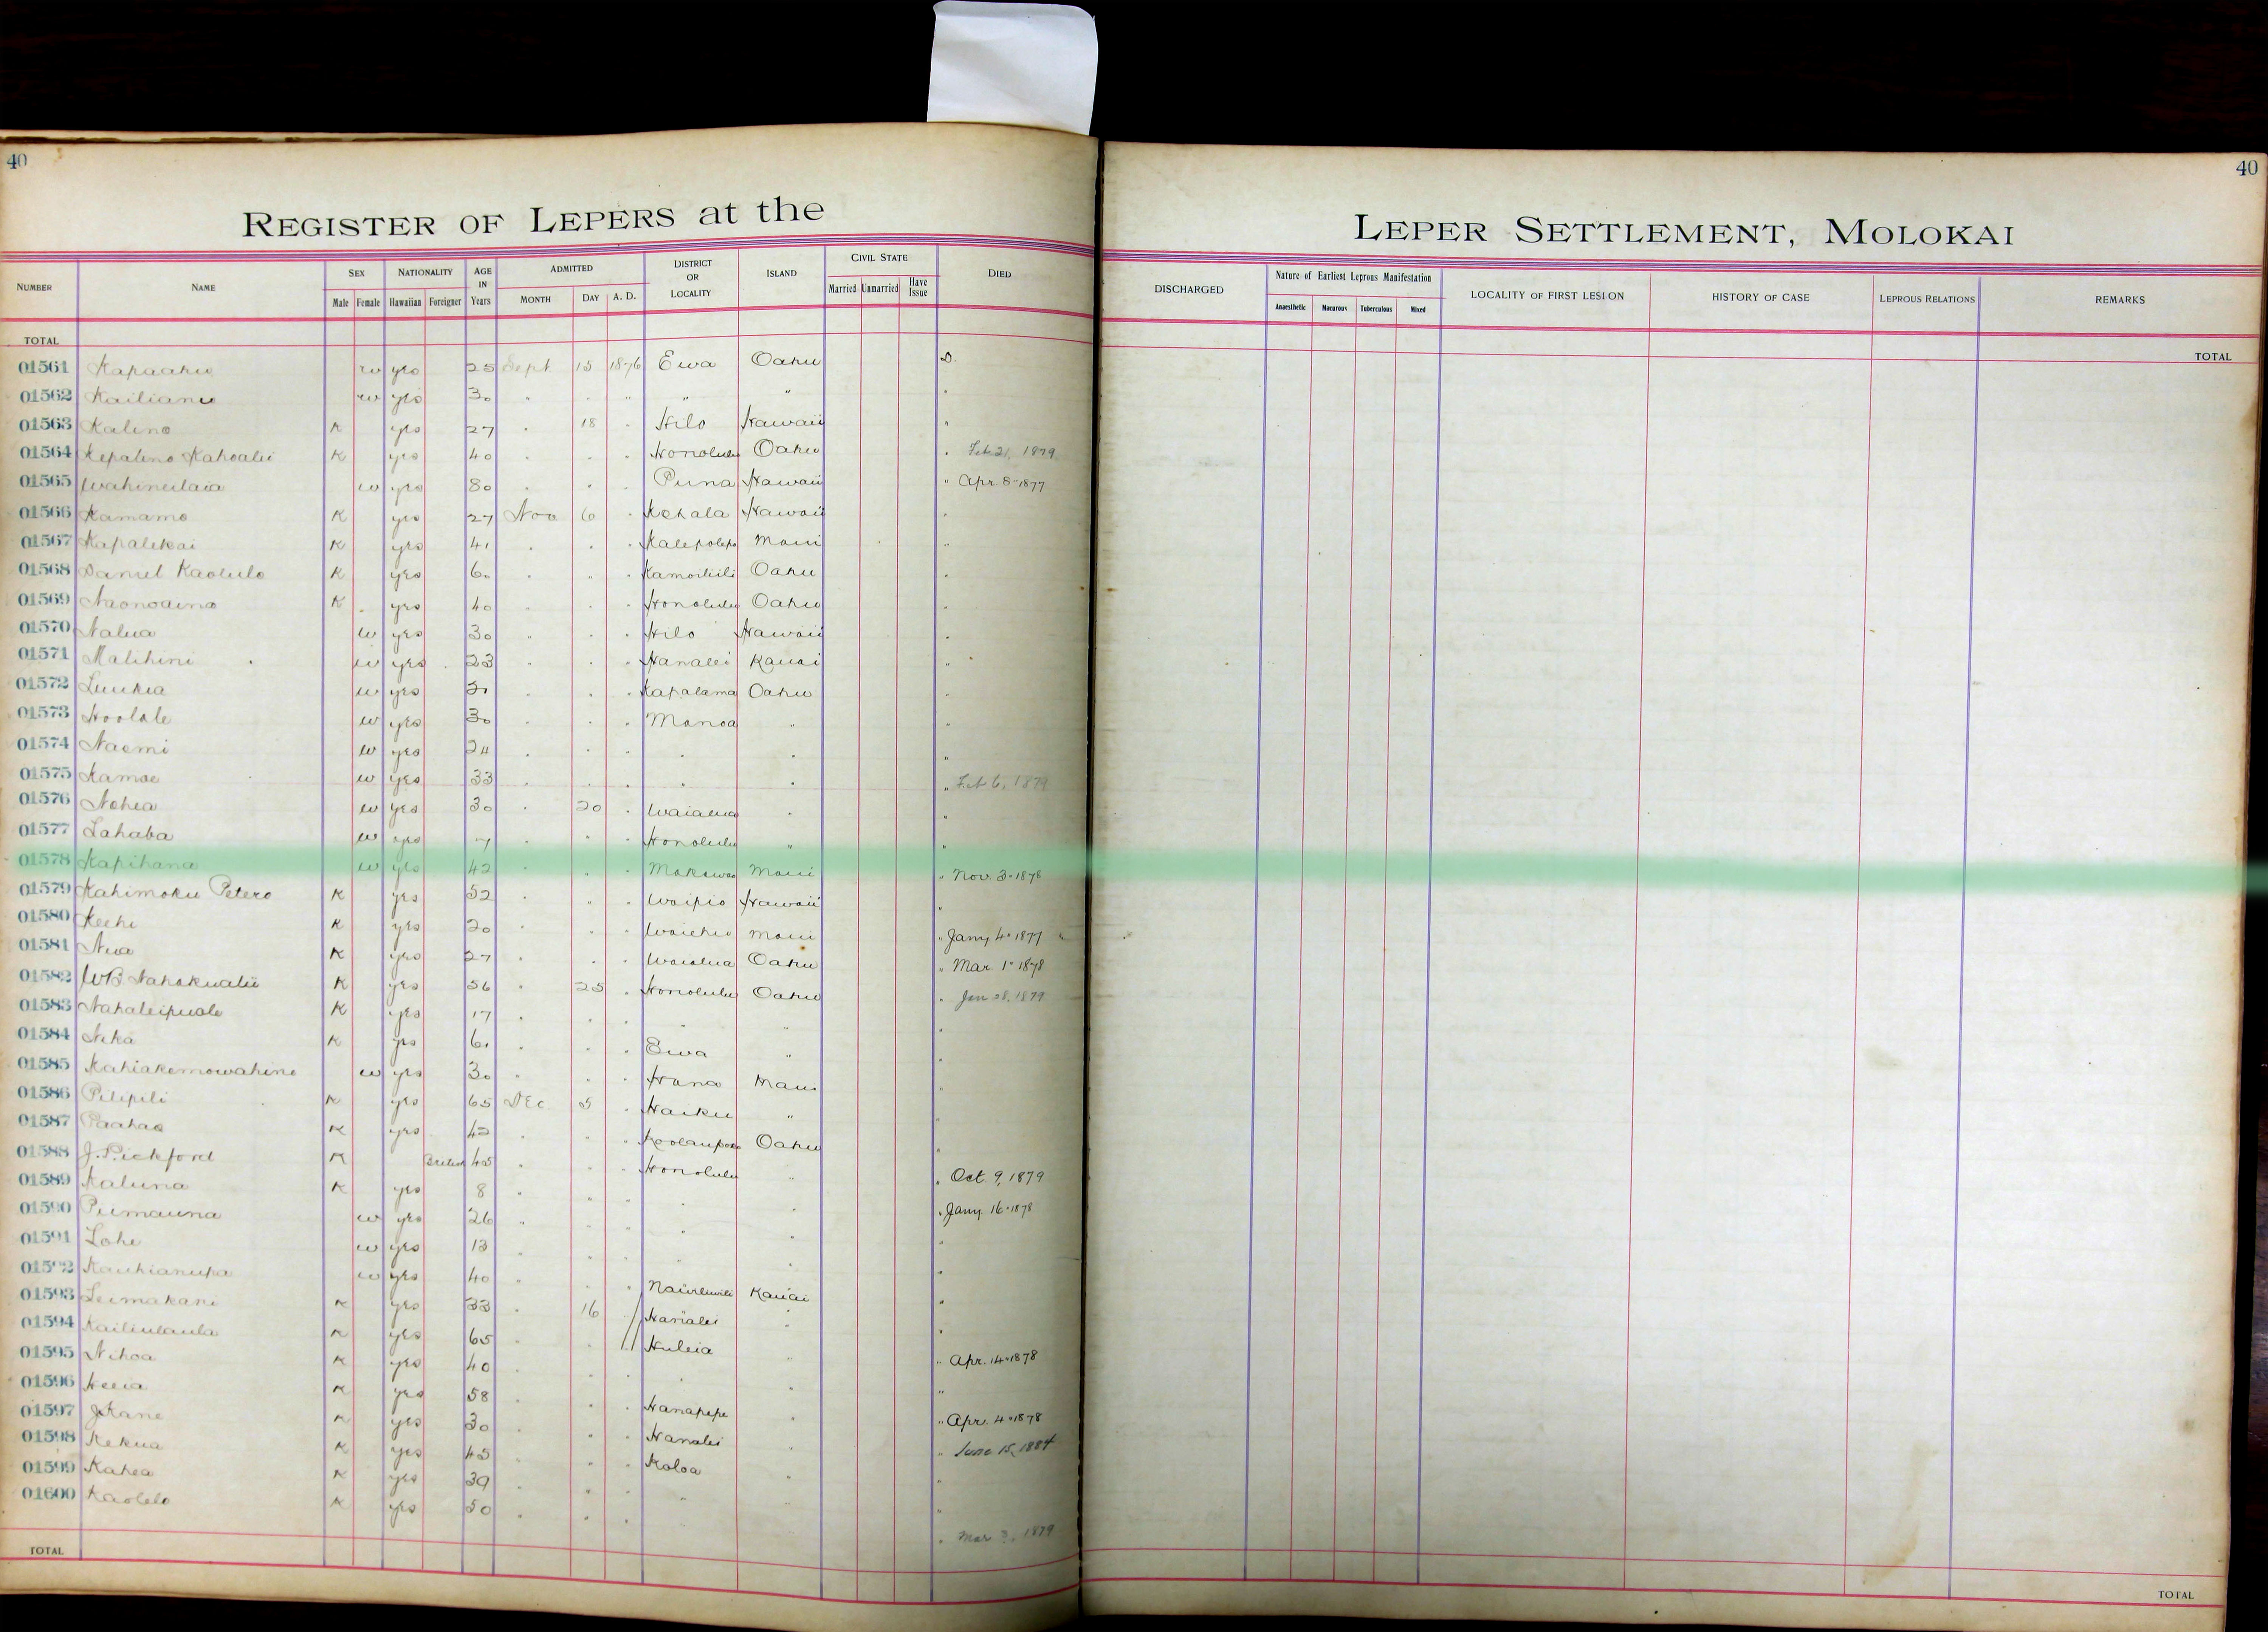 40
REGISTER OF LEPERS at the
NUMBER NAME SEX Male Female NATIONALITY Hawaiian Foreigner AGE IN Years ADMITTED MONTH DAY A. D. DISTRICT OR LOCALITY ISLAND CIVIL STATE Married Unmarried Have Issue DIED
TOTAL
01561 Kapaahu w yes 25 Sept 15 1876 Ewa Oahu D.
01562 Kailianu w yes 30 " " " " " "
01563 Kalino K yes 27 " 18 " Hilo Hawaii "
01564 Kepalino Kahoalii K yes 40 " " " Honolulu Oahu " Feb 21, 1879
01565 Wahineilaia w yes 80 " " " Puna Hawaii " Apr. 8 - 1877
01566 Kamamo K yes 27 Nov 6 " Kohala Hawaii "
01567 Kapalikai K yes 41 " " " Kalepolepo Maui "
01568 Daniel Kaolulo K yes 60 " " " Kamoiliili Oahu "
01569 Naonoaina K yes 40 " " " Honolulu Oahu "
01570 Nalua w yes 30 " " " Hilo Hawaii "
01571 Malihini w yes 23 " " " Hanalei Kauai "
01572 Luukia w yes " " " Kapalama Oahu "
01573 Hoolale w yes 30 " " " Manoa " "
01574 Naomi w yes 24 " " " " " "
01575 Kamae w yes 33 " " " " " " Feb 6, 1879
01576 Nohea w yes 30 " 20 " Waialua " "
01577 Lahaba w yes 7 " " " Honolulu " "
01578 Kapihana w yes 42 " " " Makawao Maui " Nov. 3 - 1878
01579 Kahimoku Petero K yes 52 " " " Waipio Hawaii "
01580 Keehi K yes 20 " " " Waiehu Maui " Jany 4 - 1877 "
01581 Nua K yes 27 " " " Waialua Oahu " Mar. 1 - 1878
01582 WB Nahakualii K yes 56 " 25 " Honolulu Oahu " Jan 28, 1879
01583 Nahaleipuole K yes 17 " " " " " "
01584 Nika K yes 61 " " " Ewa " "
01585 Kahiakemowahine w yes 30 " " " Hana Maui "
01586 Pilipili K yes 65 Dec 5 " Haiku " "
01587 Paahao K yes 42 " " " Koolaupoko Oahu "
01588 J. Pickford K British 45 " " " Honolulu " " Oct. 9, 1879
01589 Kaluna K yes 8 " " " " " " Jany. 16 - 1878
01590 Puimauna w yes 26 " " " " " "
01591 Lohe w yes 13 " " " " " "
01592 Kauhianupa w yes 40 " " " Nawiliwili Kauai "
01593 Leimakani K yes 33 " 16 " Hanalei " "
01594 Kailiulaula K yes 65 " " " Huleia " " Apr. 14 - 1878
01595 Nihoa K yes 40 " " " " " "
01596 Heeia K yes 58 " " " Hanapepe " " Apr. 4 - 1878
01597 J Kane K yes 30 " " " Hanalei " " June 15, 1884
01598 Kekua K yes 45 " " " Koloa " "
01599 Kahea K yes 39 " " " " " "
01600 Kaolelo K yes 50 " " " " " " Mar 3, 1879
TOTAL
40
LEPER SETTLEMENT, MOLOKAI
DISCHARGED Nature of Earliest Leprous Manifestation Anaesthetic Macurous Tuberculous Mixed LOCALITY OF FIRST LESION HISTORY OF CASE LEPROUS RELATIONS REMARKS
TOTAL
TOTAL